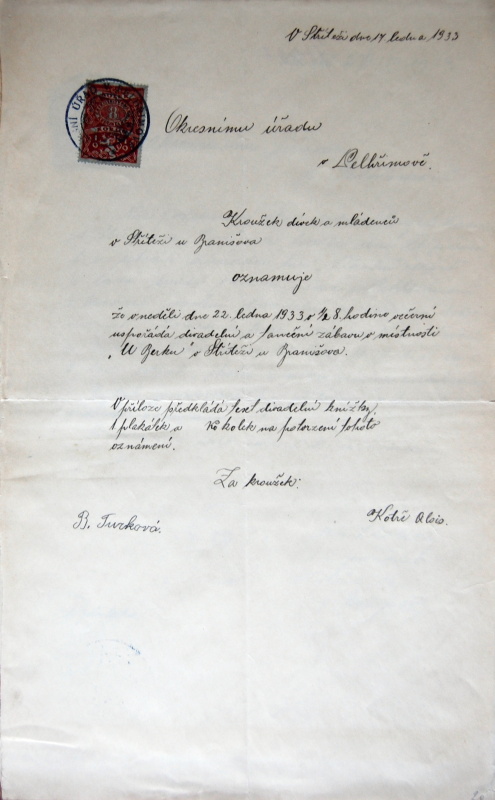 V Střítěži dne 17 ledna 1933
Okresnímu úřadu
v Pelhřimově.
Kroužek dívek a mládenců
v Střítěži u Branišova
oznamuje
že v neděli dne 22. ledna 1933 v ½ 8. hodino večerní
uspořádá divadelní a taneční zábavu v místnosti
„U Berku" v Střítěži u Branišova.
V příloze předkládá text divadelní knížky,
1 plakátek a Kč kolek na potvrzení tohoto
oznámení.
Za kroužek:
B. Turková.
Kotrč Alois.